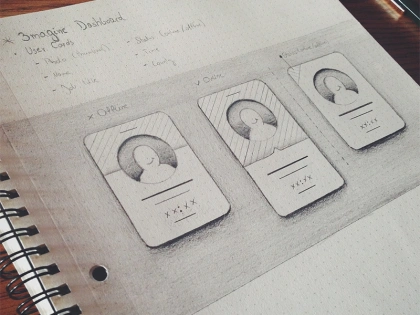 × 3magine Dashboard
• User Cards
- Photo (thumbnail)
- Name
- Job title
- Status (online/offline)
- Time
- Country
× Offline
✓ Online
xx:xx
xx:xx
xx:xx